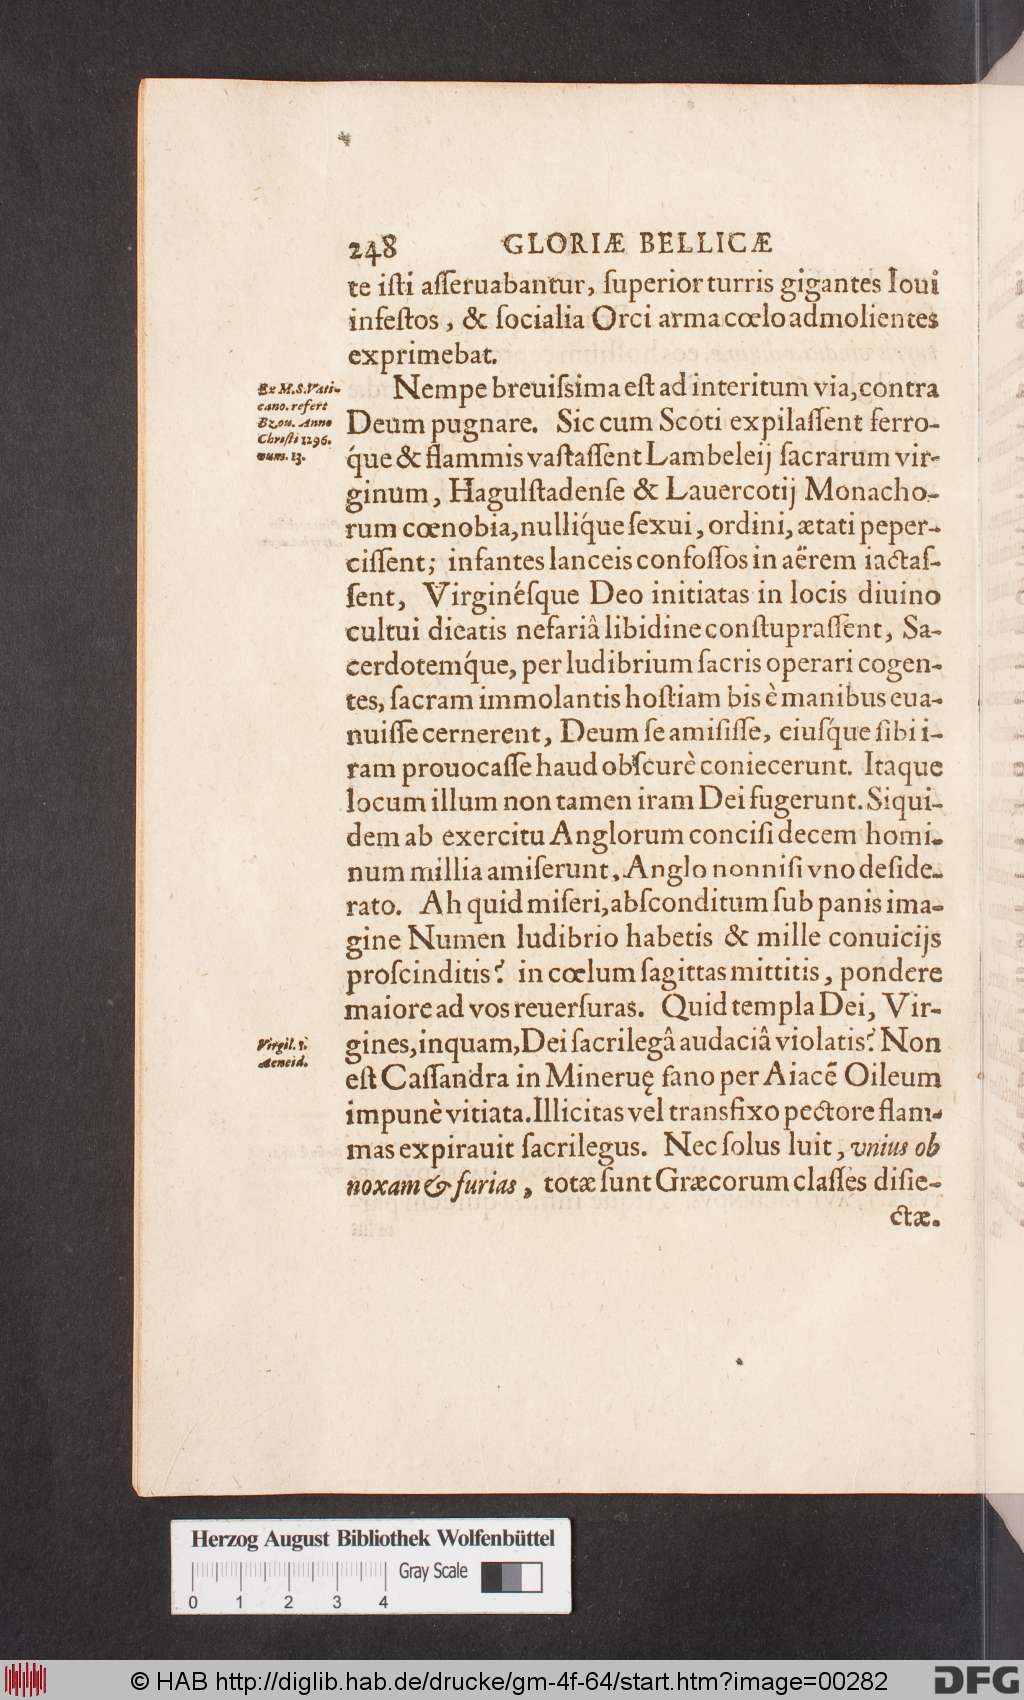 248 GLORIÆ BELLICÆ
te iſti aſſeruabantur, ſuperior turris gigantes Ioui
infeſtos, & ſocialia Orci arma cœlo admolientes
exprimebat.
Ex M.S. Vati-
cano. refert
Bzou. Anno
Chriſti 1296.
num. 13.
Nempe breuiſsima eſt ad interitum via, contra
Deum pugnare. Sic cum Scoti expilaſſent ferro-
q́ue & flammis vaſtaſſent Lambeleij ſacrarum vir-
ginum, Hagulſtadenſe & Lauercotij Monacho-
rum cœnobia, nulliq́ue ſexui, ordini, ætati peper-
ciſſent; infantes lanceis confoſſos in aërem iactaſ-
ſent, Virginéſque Deo initiatas in locis diuino
cultui dicatis nefariâ libidine conſtupraſſent, Sa-
cerdotemq́ue, per ludibrium ſacris operari cogen-
tes, ſacram immolantis hoſtiam bis è manibus eua-
nuiſſe cernerent, Deum ſe amiſiſſe, eiuſq́ue ſibi i-
ram prouocaſſe haud obſcurè coniecerunt. Itaque
locum illum non tamen iram Dei fugerunt. Siqui-
dem ab exercitu Anglorum conciſi decem homi-
num millia amiſerunt, Anglo nonniſi vno deſide-
rato. Ah quid miſeri, abſconditum ſub panis ima-
gine Numen ludibrio habetis & mille conuicijs
proſcinditis? in cœlum ſagittas mittitis, pondere
maiore ad vos reuerſuras. Quid templa Dei, Vir-
gines, inquam, Dei ſacrilegâ audaciâ violatis? Non
eſt Caſſandra in Mineruę fano per Aiacē Oileum
impunè vitiata. Illicitas vel transfixo pectore flam-
mas expirauit ſacrilegus. Nec ſolus luit, vnius ob
noxam & furias, totæ ſunt Græcorum claſſes diſie-
ctæ.
Virgil. 1.
Aeneid.
Herzog August Bibliothek Wolfenbüttel
Gray Scale
0 1 2 3 4
© HAB http://diglib.hab.de/drucke/gm-4f-64/start.htm?image=00282
DFG